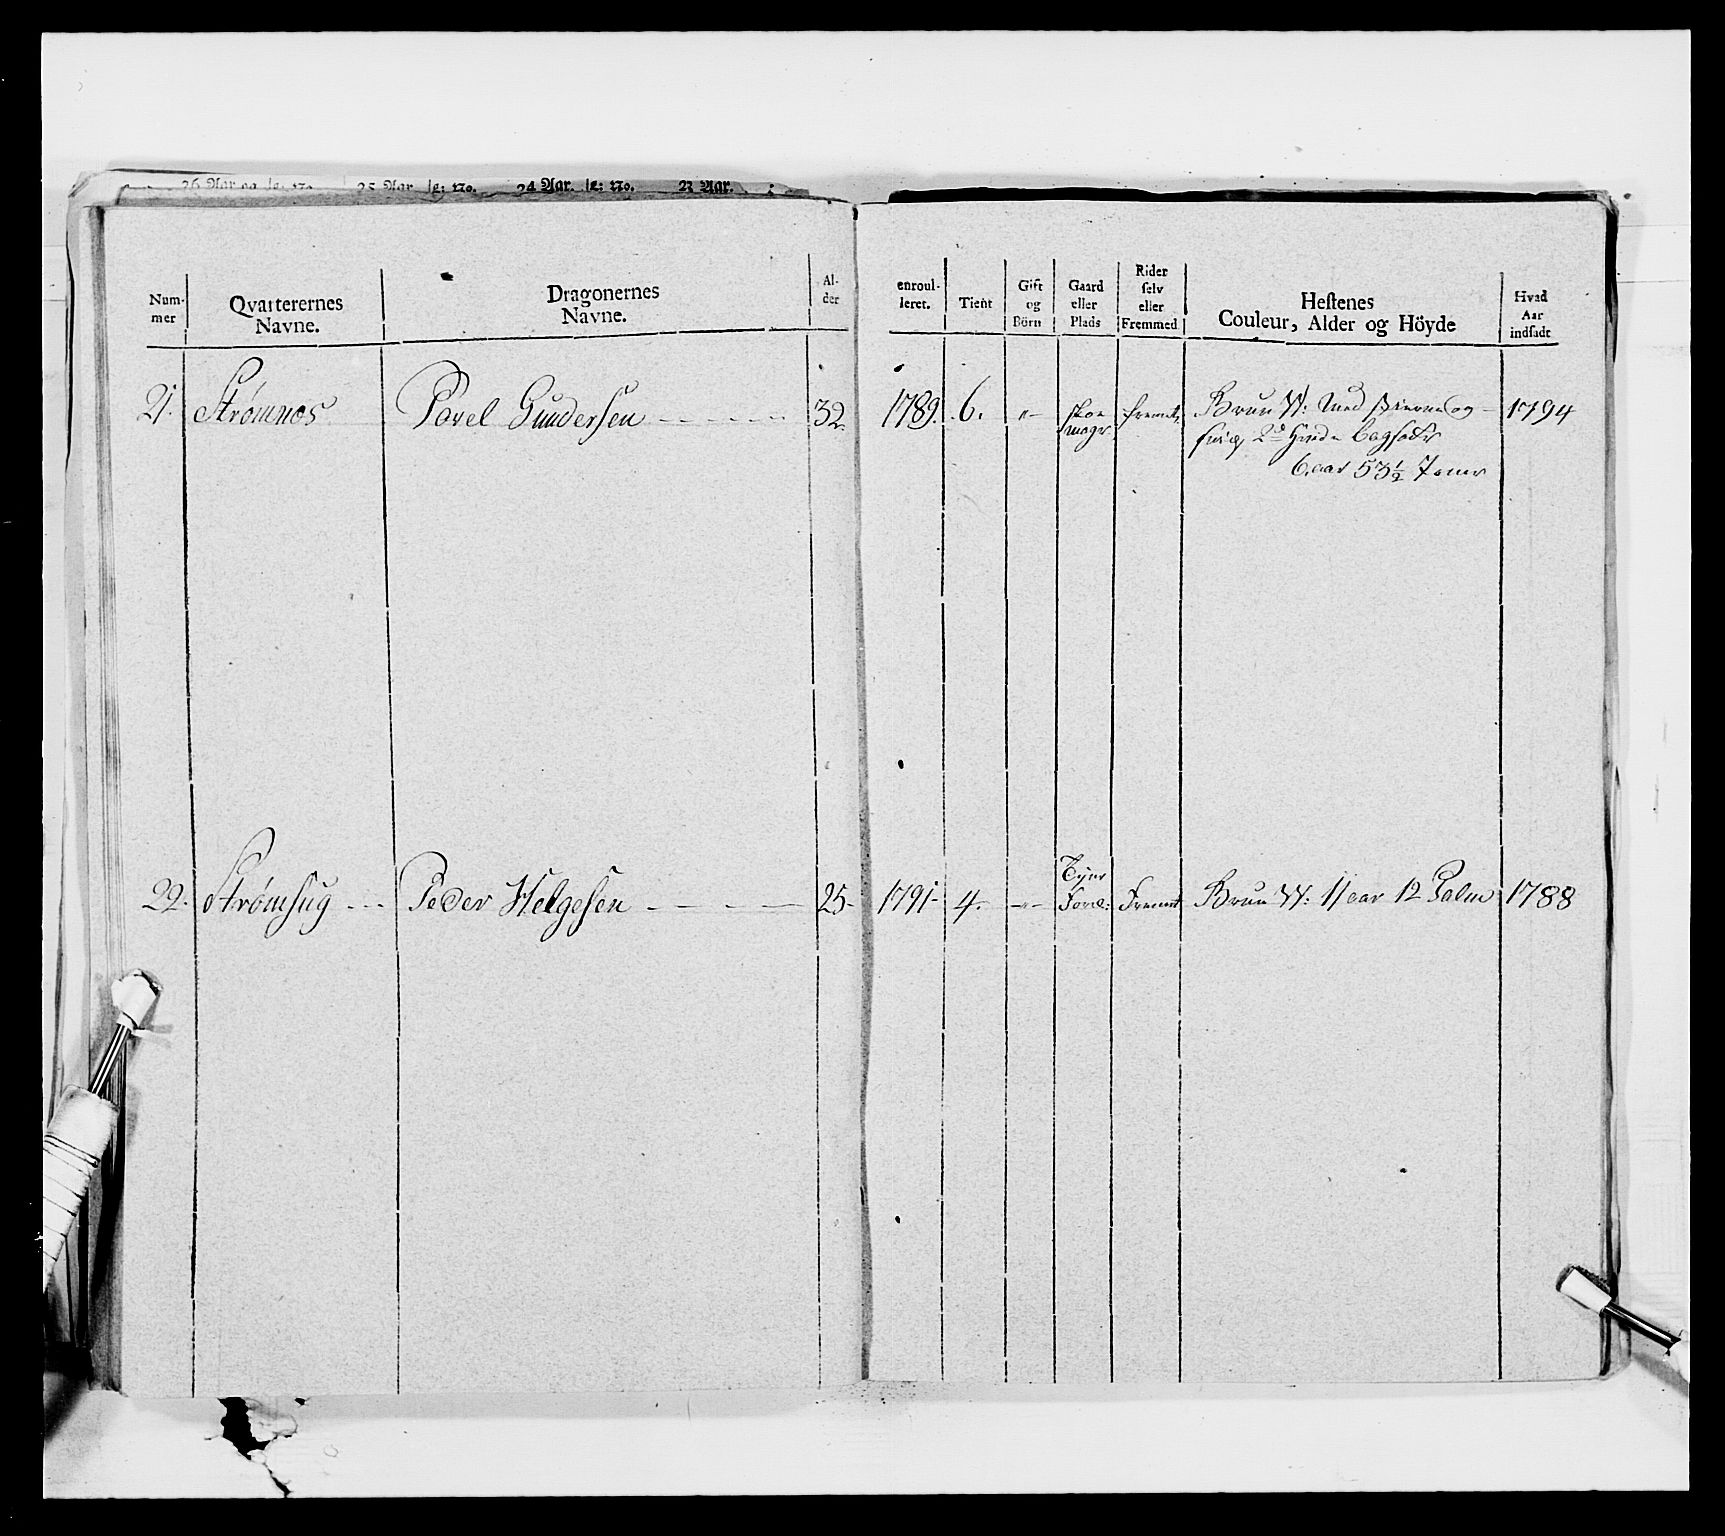 26 Aar og 25 Aar. No. 24 Aar. No. 23 Aar.
Num-
mer
Qvarterernes
Navne.
Dragonernes
Navne.
Al-
der
enroul-
leret.
Tient
Gift
og
Börn
Gaard
eller
Plads
Rider
selv
eller
Fremmed
Hestenes
Couleur, Alder og Höyde
Hvad
Aar
indsadt
21. Strømnæs Povel Gundersen 32 1789. 6. Skoe fremt Brun W: Med Stierne og 1794
mager 2de Hvide bagfodder
6. aar 53 1/2 Tomer
Tyne
22. Strømsug Peder Helgesen 25 1791 4. Foræ: Fremt Brun W: 11 aar 12 Palm 1788